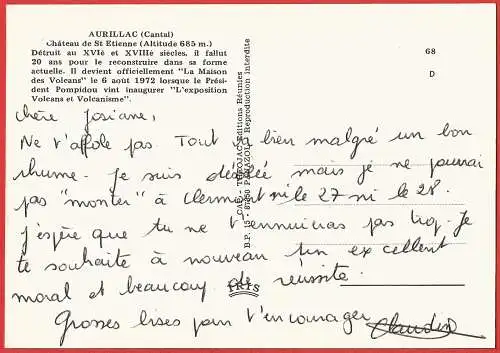 AURILLAC (Cantal)
Château de St Etienne (Altitude 685 m.)
Détruit au XVIè et XVIIIè siècles, il fallut
20 ans pour le reconstruire dans sa forme
actuelle. Il devient officiellement "La Maison
des Volcans" le 6 août 1972 lorsque le Prési-
dent Pompidou vint inaugurer "L'exposition
Volcans et Volcanisme".
68
D
Editions Réunies
B.P. 15 - Reproduction interdite
Chère Josiane,
Ne t'affole pas Tout va bien malgré un bon
rhume. Je suis désolée mais je ne pourrai
pas "monter" à Clermont ni le 27 ni le 28.
J'espère que tu ne t'ennuieras pas trop. Je
te souhaite à nouveau un excellent
moral et beaucoup de réussite.
IRIS
Grosses bises pour t'encourager
Claudine